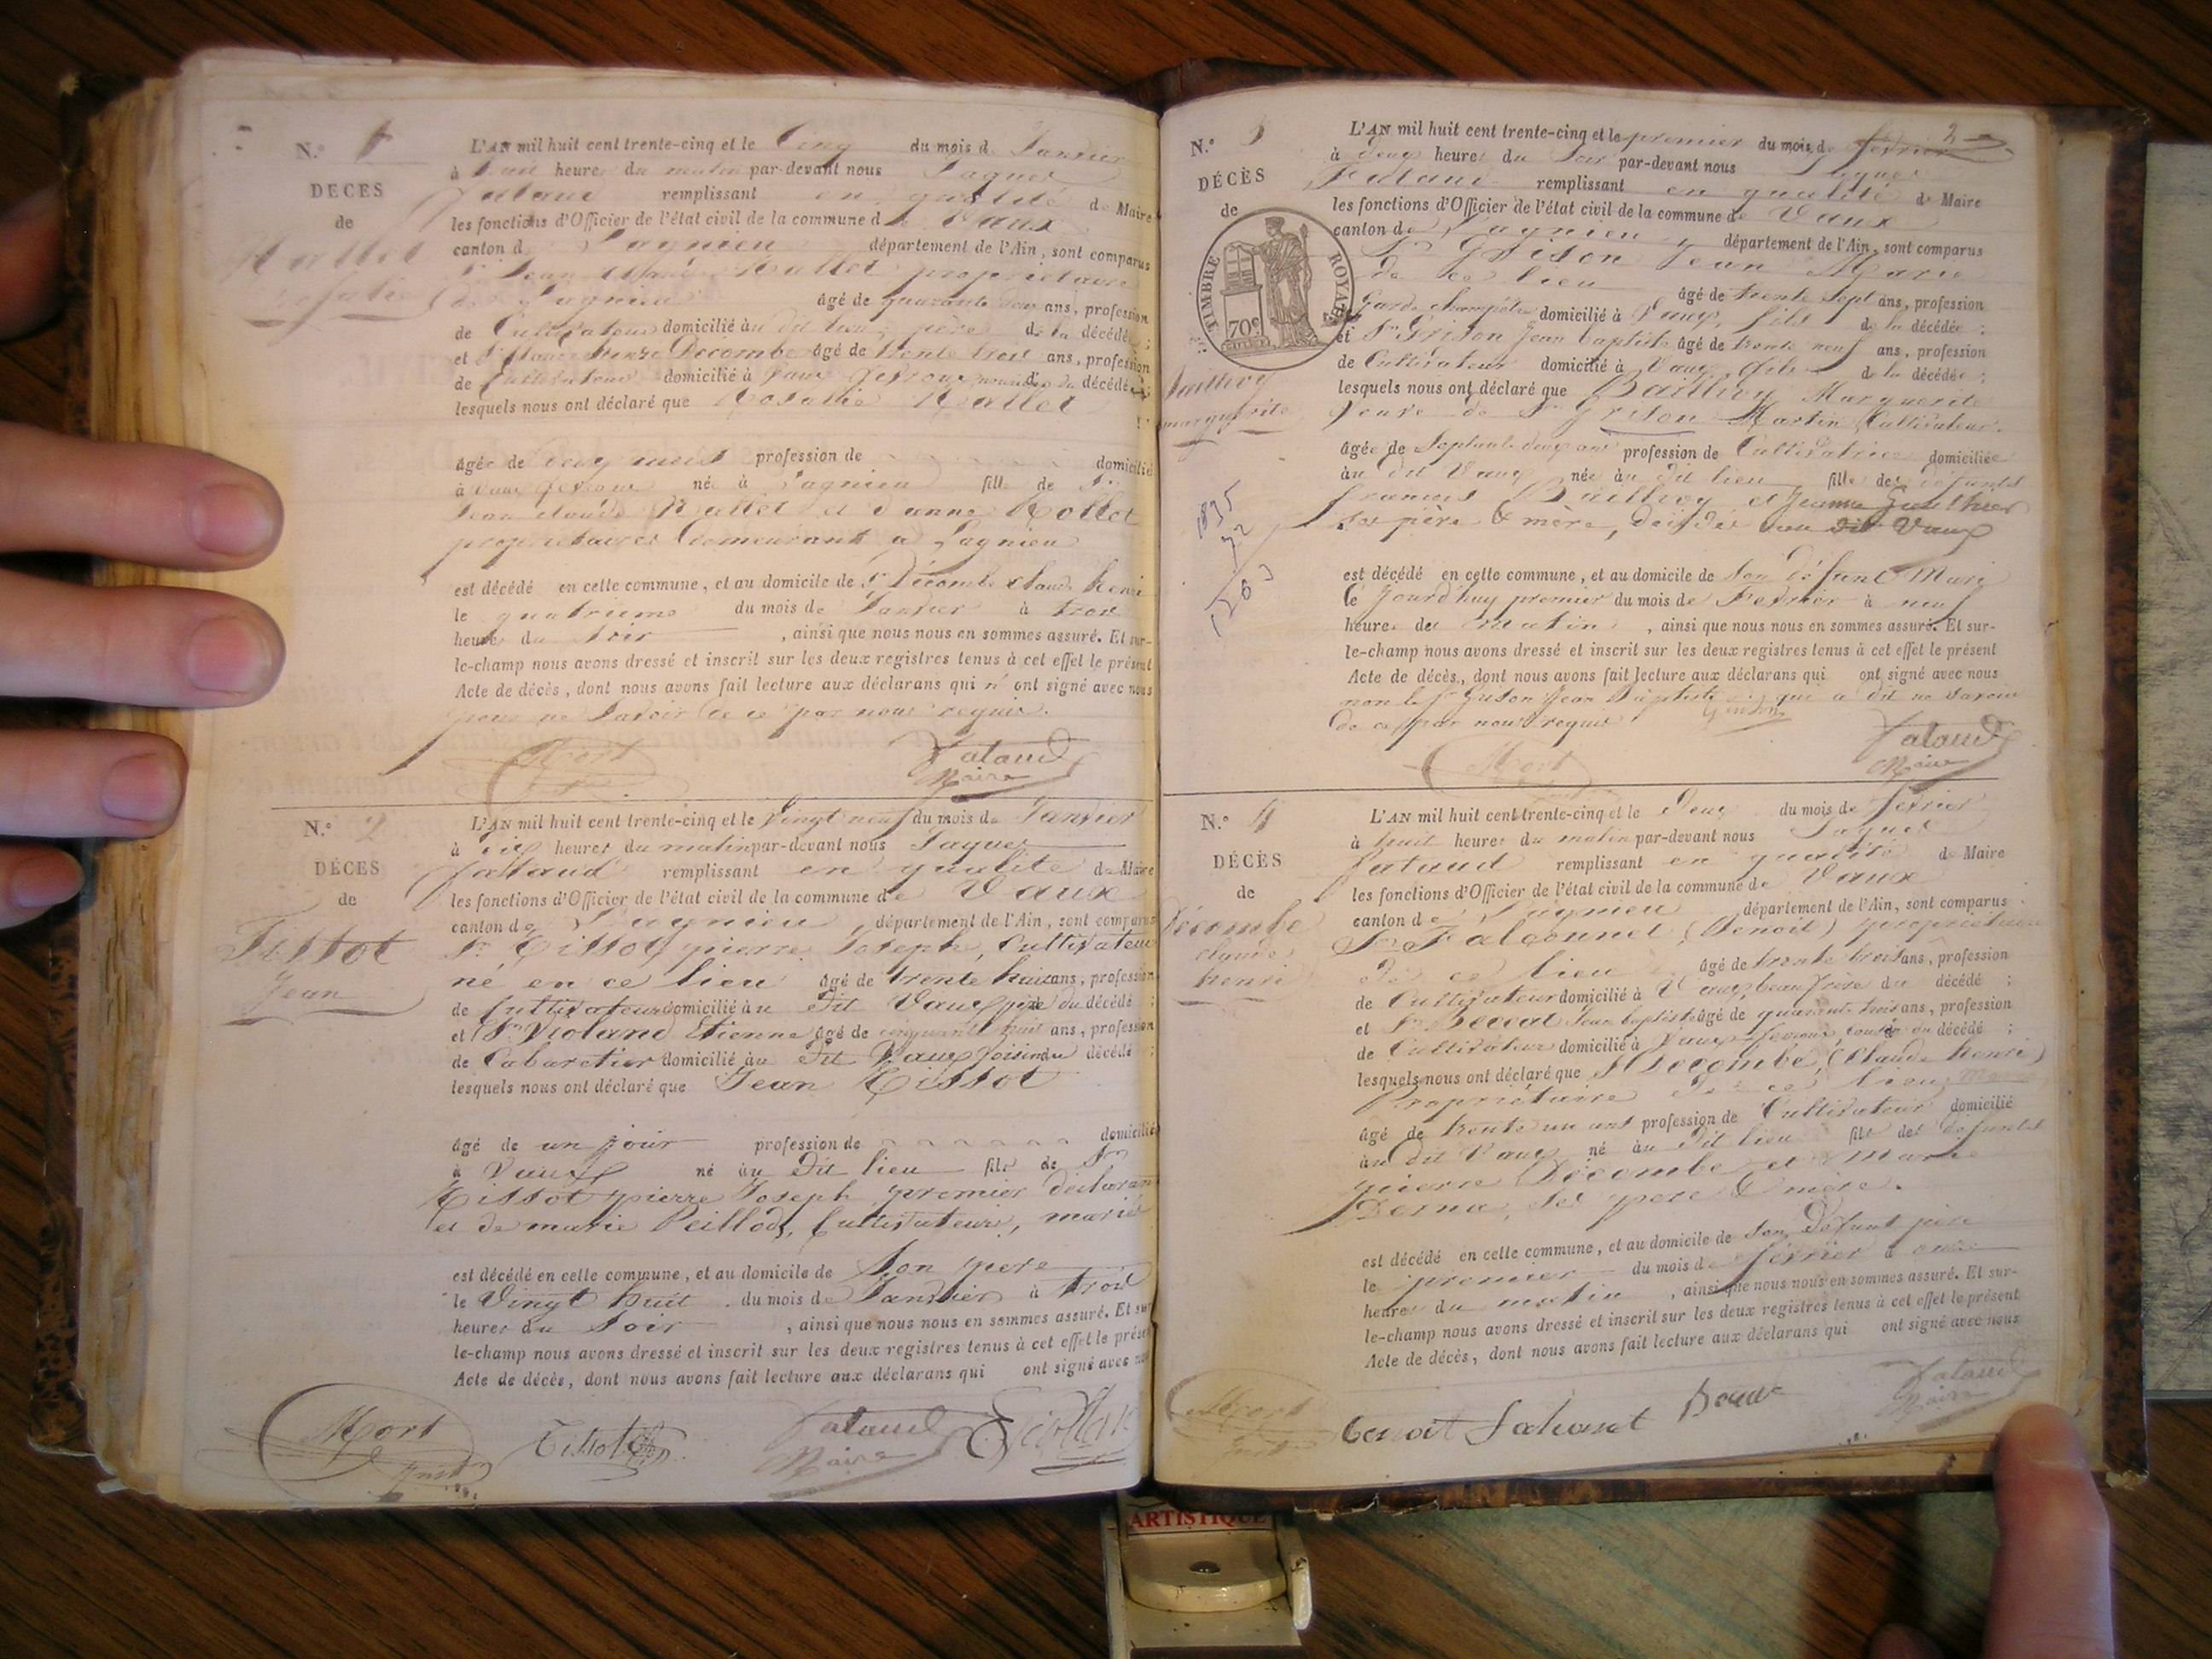 N.° 1
DÉCÈS
de
Rosalie
L'AN mil huit cent trente-cinq et le Cinq du mois de Janvier
à heure du matin par-devant nous Jaques
Fataud remplissant en qualité de Maire
les fonctions d'Officier de l'état civil de la commune de Vaux
canton de Lagnieu département de l'Ain, sont comparus
Sr Jean Claude Rallet propriétaire
de Lagnieu âgé de quarante deux ans, profession
de Cultivateur domicilié au dit lieu, père de la décédée ;
et Sr Claude Henri Décombe âgé de trente trois ans, profession
de Cultivateur domicilié à Vaux Fevroux nourricier de la décédée ;
lesquels nous ont déclaré que Rosalie Rallet
âgée de cinq mois profession de domicilié
à Vaux fevroux née à Lagnieu fille de Sr
Jean claude Rallet et d'anne Rollet
propriétaires demeurant a Lagnieu
est décédé en cette commune, et au domicile de Sr Décombe Claude henri
le quatrieme du mois de Janvier à trois
heures du soir , ainsi que nous nous en sommes assuré. Et sur-
le-champ nous avons dressé et inscrit sur les deux registres tenus à cet effet le présent
Acte de décès, dont nous avons fait lecture aux déclarans qui n'ont signé avec nous
pour ne savoir de ce par nous requis.
Mort Fataud
Maire
N.° 2
DÉCÈS
de
Tissot
Jean
L'AN mil huit cent trente-cinq et le Vingt neuf du mois de Janvier
à dix heures du matin par-devant nous Jaques
fataud remplissant en qualité de Maire
les fonctions d'Officier de l'état civil de la commune de Vaux
canton de Lagnieu, département de l'Ain, sont comparus
Sr Tissot pierre Joseph, Cultivateur
né en ce lieu âgé de trente huit ans, profession
de Cultivateur domicilié au dit Vaux père du décédé ;
et Sr Violand Etienne âgé de cinquante huit ans, profession
de Cabaretier domicilié au dit Vaux voisin du décédé ;
lesquels nous ont déclaré que Jean Tissot
âgé de un jour profession de domicilié
à Vaux né au dit lieu fils de Sr
Tissot pierre Joseph premier declarant
et de marie Peillod, Cultivateurs, mariés
est décédé en cette commune, et au domicile de Son pere
le Vingt huit du mois de Janvier à trois
heures du Soir , ainsi que nous nous en sommes assuré. Et sur
le-champ nous avons dressé et inscrit sur les deux registres tenus à cet effet le présent
Acte de décès, dont nous avons fait lecture aux déclarans qui ont signé avec nous
Mort Tissot Fataud
Maire
2
N.° 3
DÉCÈS
de
TIMBRE ROYAL
70c
Baillivy
marguerite
1835
72
1763
L'AN mil huit cent trente-cinq et le premier du mois de fevrier
à deux heures du Soir par-devant nous Jaques
Fataud remplissant en qualité de Maire
les fonctions d'Officier de l'état civil de la commune de Vaux
canton de Lagnieu département de l'Ain, sont comparus
Sr Grison Jean Marie
de ce lieu âgé de trente Sept ans, profession
Garde champêtre domicilié à Vaux, fils de la décédée ;
et Sr Grison Jean baptiste âgé de trente neuf ans, profession
de Cultivateur domicilié à Vaux, fils de la décédée ;
lesquels nous ont déclaré que Bailllivy Marguerite
Veuve de Sr Grison Martin Cultivateur.
âgée de Septante deux ans profession de Cultivatrice domiciliée
au dit Vaux née au dit lieu fille des defunts
francois Baillivy et Jeanne Gauthier
ses père & mère, décédés au dit Vaux
est décédé en cette commune, et au domicile de Son défunt Mari
le Jourd'huy premier du mois de Fevrier à neuf
heures du matin , ainsi que nous nous en sommes assuré. Et sur-
le-champ nous avons dressé et inscrit sur les deux registres tenus à cet effet le présent
Acte de décès, dont nous avons fait lecture aux déclarans qui ont signé avec nous
non le Sr Grison Jean Baptiste qui a dit ne savoir
de ce par nous requis Grison
Mort Fataud
Maire
N.° 4
DÉCÈS
de
Décombe
claude
henri
L'AN mil huit cent trente-cinq et le Deux du mois de fevrier
à huit heures du matin par-devant nous Jaques
fataud remplissant en qualité de Maire
les fonctions d'Officier de l'état civil de la commune de Vaux
canton de Lagnieu département de l'Ain, sont comparus
Sr Falconnet (Benoit) propriétaire
de ce lieu âgé de trente trois ans, profession
de Cultivateur domicilié à Vaux, beau frère du décédé ;
et Sr Jean baptiste âgé de quarante trois ans, profession
de Cultivateur domicilié à Vaux fevroux, cousin du décédé ;
lesquels nous ont déclaré que Sr Decombe, (Claude henri)
Propriétaire de ce lieu
âgé de trente un ans profession de Cultivateur domicilié
au dit Vaux né au dit lieu fils des defunts
pierre Décombe et Marie
Derna, ses pere & mère.
est décédé en cette commune, et au domicile de Son Défunt père
le premier du mois de fevrier à onze
heures du matin , ainsi que nous nous en sommes assuré. Et sur-
le-champ nous avons dressé et inscrit sur les deux registres tenus à cet effet le présent
Acte de décès, dont nous avons fait lecture aux déclarans qui ont signé avec nous
Mort Benoit Fataud
Maire
ARTISTIQUE